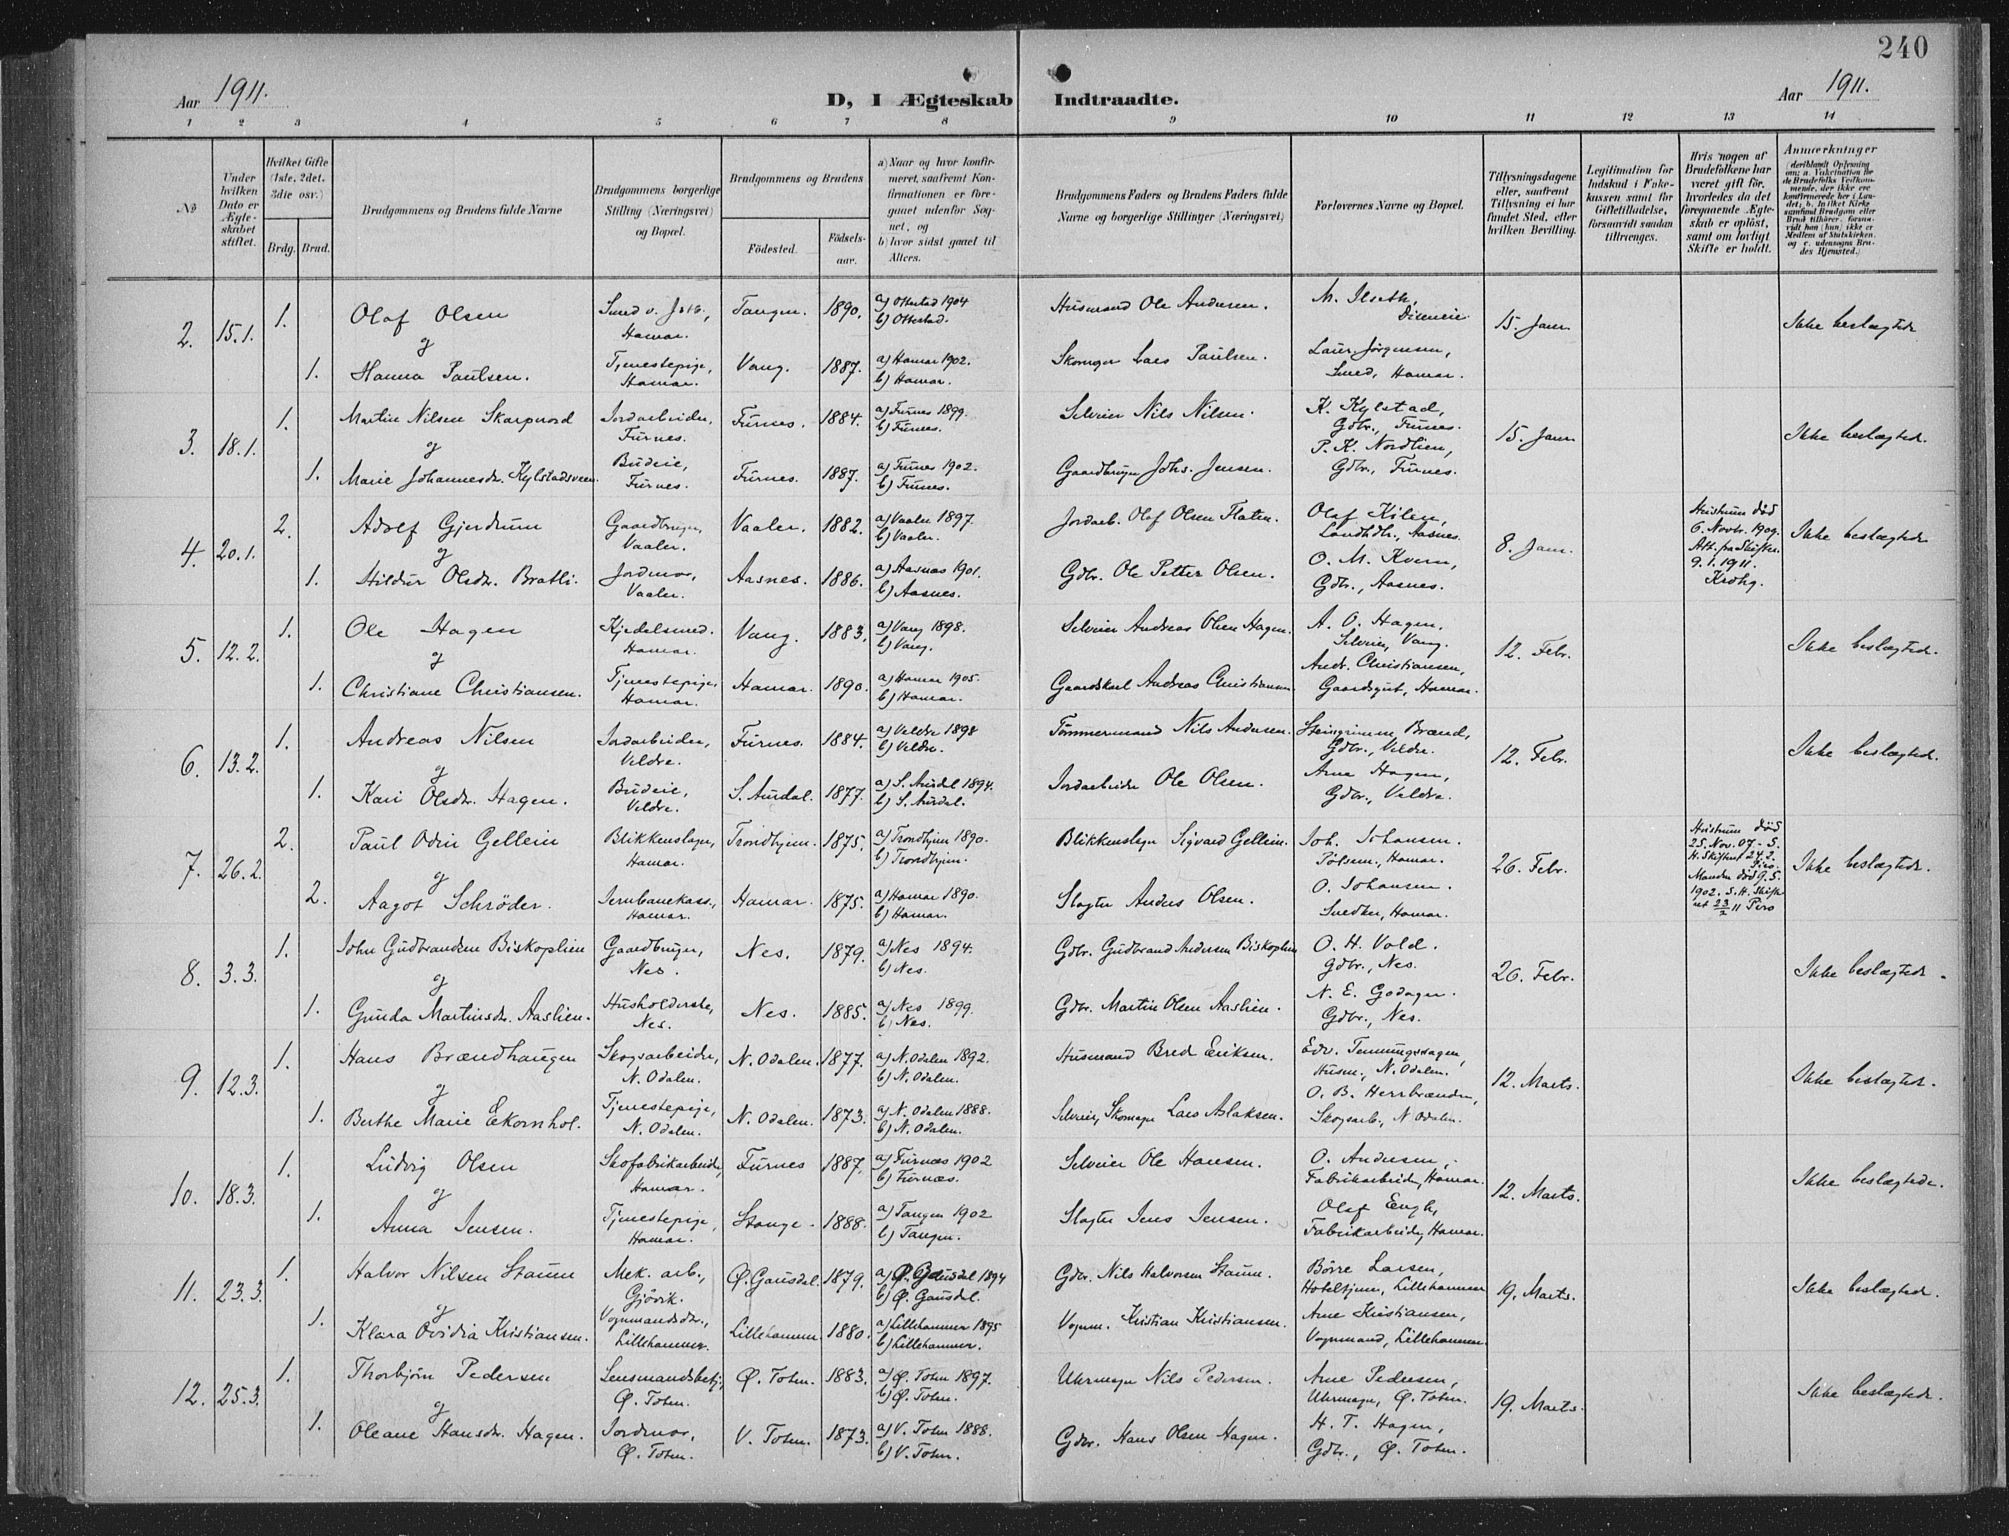 240
Aar 1911.
D, I Ægteskab Indtraadte.
Aar 1911.
1 2 3 4 5 6 7 8 9 10 11 12 13 14
№
Under hvilken Dato er Ægteskabet stiftet.
Hvilket Gifte (1ste, 2det, 3die osv.)
Brdg. Brud.
Brudgommens og Brudens fulde Navne
Brudgommens borgerlige Stilling (Næringsvei) og Bopæl.
Brudgommens og Brudens
Fødested.
Fødsels-aar.
a) Naar og hvor konfirmeret, saafremt Konfirmationen er foregaaet udenfor Sognet, og
b) hvor sidst gaaet til Alters.
Brudgommens Faders og Brudens Faders fulde Navne og borgerlige Stillinger (Næringsvei)
Forlovernes Navne og Bopæl.
Tillysningsdagene eller, saafremt Tillysning ei har fundet Sted, efter hvilken Bevilling.
Legitimation for Indskud i Enkekassen samt for Giftetilladelse, forsaavidt saadan tiltrænges.
Hvis nogen af Brudefolkene har været gift før, hvorledes da det foregaaende Ægteskab er opløst, samt om lovligt Skifte er holdt.
Anmærkninger
2. 15.1. 1. Olaf Olsen Smed v. Jstb., Hamar. Tangen. 1890. a) Ottestad 1904 b) Ottestad. Husmand Ole Andersen. M. Ilseth, 15. Jan. Ikke beslægtede
og
1. Hanna Paulsen. Tjenestepige, Hamar. Vang. 1887. a) Hamar 1902. b) Hamar. Skomger Lars Paulsen. Laur. Jørgensen, Smed, Hamar.
3. 18.1. 1. Martin Nilsen Skarpnord Jordarbeider, Furnes. Furnes. 1884. a) Furnes 1899. b) Furnes. Selveier Nils Nilsen. K. Kylstad, Gdbr., Furnes. 15. Jan. Ikke beslægtede.
og
1. Marie Johannesdr. Kylstadsveen. Budeie, Furnes. Furnes. 1887. a) Furnes 1902. b) Furnes. Gaardbruger Johs. Jensen. P. K. Nordlien, Gdbr., Furnes.
4. 20.1. 2. Adolf Gjerdrum Gaardbruger, Vaaler. Vaaler. 1882. a) Vaaler 1897. b) Vaaler. Jordarb. Olaf Olsen Flaten. Olaf Kilen, Landhdlr., Aasnes. 8. Jan. Hustruen død 6. Novbr. 1909. Att. fra Skifter. 9.1.1911. Krohg. Ikke beslægtede
og
1. Hildur Olsdr. Bratli. Jordmor, Vaaler. Aasnes. 1886. a) Aasnes 1901. b) Aasnes. Gdbr. Ole Petter Olsen. O. M. Kvern, Gdbr., Aasnes.
5. 12.2. 1. Ole Hagen Kjedelsmed. Hamar. Vang. 1883. a) Vang 1898. b) Vang. Selveier Andreas Olsen Hagen. A. O. Hagen, Selveier, Vang. 12. Febr. Ikke beslægtede.
og
1. Christiane Christiansen. Tjenestepige, Hamar. Hamar. 1890. a) Hamar 1905. b) Hamar. Gaardskarl Andreas Christiansen. Andr. Christiansen, Gaardsgut, Hamar.
6. 13.2. 1. Andreas Nilsen Jordarbeider, Veldre. Furnes. 1884. a) Veldre 1898 b) Veldre. Tømmermand Nils Andersen. Steingrimm Brænd, Gdbr., Veldre. 12. Febr. Ikke beslægtede.
og
1. Kari Olsdr. Hagen. Budeie, Veldre. S. Aurdal. 1877. a) S. Aurdal 1894. b) S. Aurdal. Jordarbeider Ole Olsen. Arne Hagen, Gdbr., Veldre.
7. 26.2. 2. Paul Odin Gellein Blikkenslager, Hamar. Trondhjem. 1875. a) Trondhjem 1890. b) Trondhjem. Blikkenslager Sigvard Gellein. Joh. Johansen. Hamar. 26. Febr. Hustruen død 25. Nov. 07 - S. H. Skifteret 24.2. Piro Manden død 9.5. 1902. S. H. Skifteret 23/2 11 Piro Ikke beslægtede.
og
2. Aagot Schrøder. Jernbanekass., Hamar. Hamar. 1875. a) Hamar 1890. b) Hamar. Slagter Anders Olsen. O. Johansen. Snedker, Hamar.
8. 3.3. 1. John Gudbrandsen Biskoplien Gaardbruger, Nes. Nes. 1879. a) Nes 1894. b) Nes. Gdbr. Gudbrand Andersen Biskoplien O. H. Vold. Gdbr., Nes. 26. Febr. Ikke beslægtede.
og
1. Gunda Martinsdr. Aaslien. Husholderske, Nes. Nes. 1885. a) Nes 1899. b) Nes. Gdbr. Martin Olsen Aaslien. N. E. Godager. Gdbr., Nes.
9. 12.3. 1. Hans Brændhaugen Skogsarbeider, N. Odalen. N. Odalen. 1877. a) N. Odalen 1892. b) N. Odalen. Husmand Bred Eriksen. Edv. Husm., N. Odalen. 12. Marts. Ikke beslægtede.
og
1. Berthe Marie Ekornhol. Tjenestepige, N. Odalen. N. Odalen. 1873. a) N. Odalen 1888. b) N. Odalen. Selveier, Skomager Lars Aslaksen. O. B. Herrbrænden, Skogsarb., N. Odalen.
10. 18.3. 1. Ludvig Olsen Skofabrikarbeider, Hamar. Furnes 1887. a) Furnæs 1902 b) Furnæs. Selveier Ole Hansen. O. Andersen, Fabrikarbeider, Hamar. 12. Marts. Ikke beslægtede.
og
1. Anna Jensen. Tjenestepige, Hamar. Stange. 1888. a) Tangen 1902 b) Tangen. Slagter Jens Jensen. Olaf Engh, Fabrikarbeider, Hamar.
11. 23.3. 1. Halvor Nilsen Staum Mek. arb., Gjøvik. Ø. Gausdal. 1879. a) Ø. Gausdal 1894 b) Ø. Gausdal. Gdbr. Nils Halvorsen Staum. Børre Larsen, Hoteltjener, Lillehammer 19. Marts. Ikke beslægtede.
og
1. Klara Ovidia Kristiansen. Vognmandsdr., Lillehammer. Lillehammer. 1880. a) Lillehammer 1895 b) Lillehammer. Vognm. Kristian Kristiansen. Arne Kristiansen, Vognmand, Lillehammer.
12. 25.3. 1. Thorbjørn Pedersen Lensmandsbetj., Ø. Toten. Ø. Toten. 1883. a) Ø. Toten 1897. b) Ø. Toten. Uhrmager Nils Pedersen. Arne Pedersen, Uhrmager, Ø. Toten. 19. Marts. Ikke beslægtede.
og
1. Oleane Hansdr. Hagen. Jordmor, Ø. Toten. V. Toten. 1873. a) V. Toten 1888. b) V. Toten. Gdbr. Hans Olsen Hagen. H. T. Hagen, Gdbr., Ø. Toten.